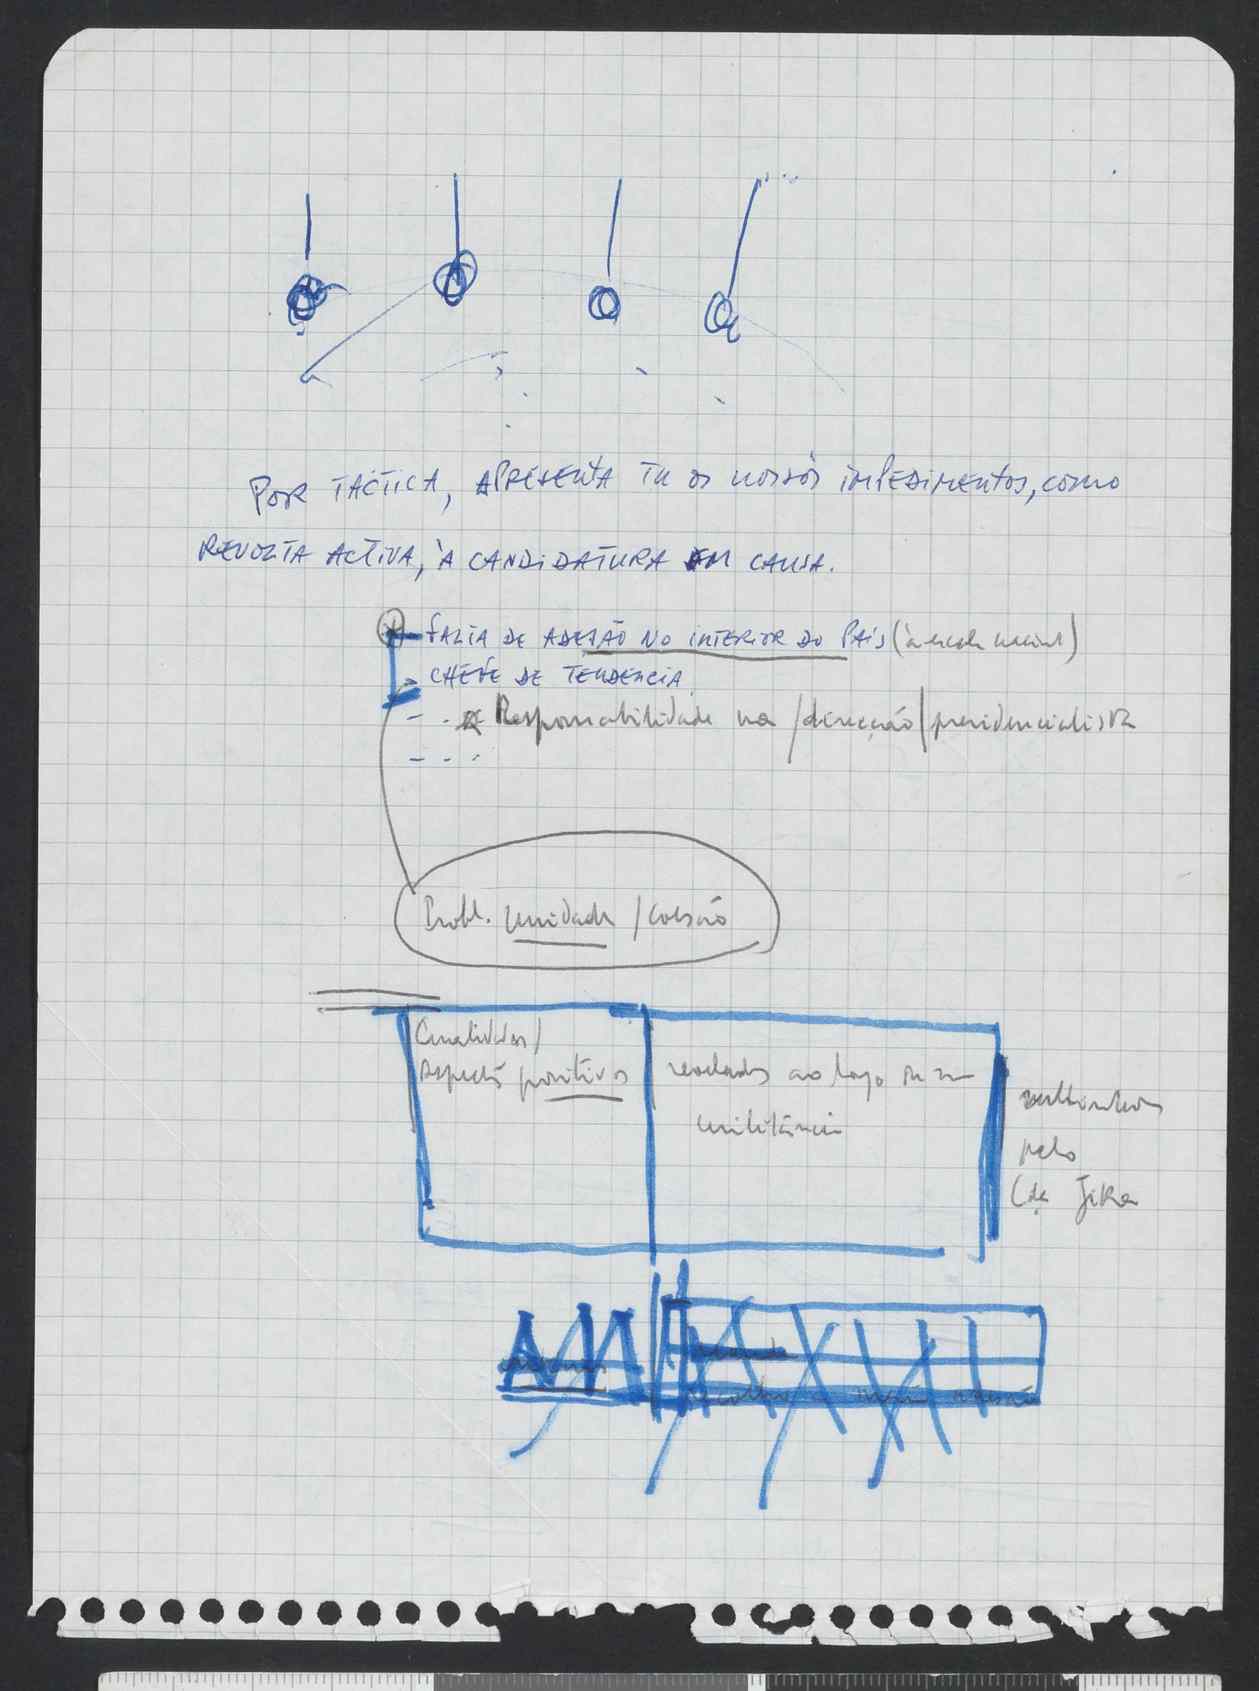 POR TÁCTICA, APRESENTA TU OS NOSSOS IMPEDIMENTOS, COMO
REVOLTA ACTIVA, À CANDIDATURA EM CAUSA.
- FALTA DE ADESÃO NO INTERIOR DO PAÍS (à escala nacional)
- CHEFE DE TENDÊNCIA
- Responsabilidade na /direcção/ presidencialista
- - -
Probl. Unidade / Coesão
Qualidades /
Aspectos positivos
revelados ao longo da sua
militância
pelo
Cda Jika